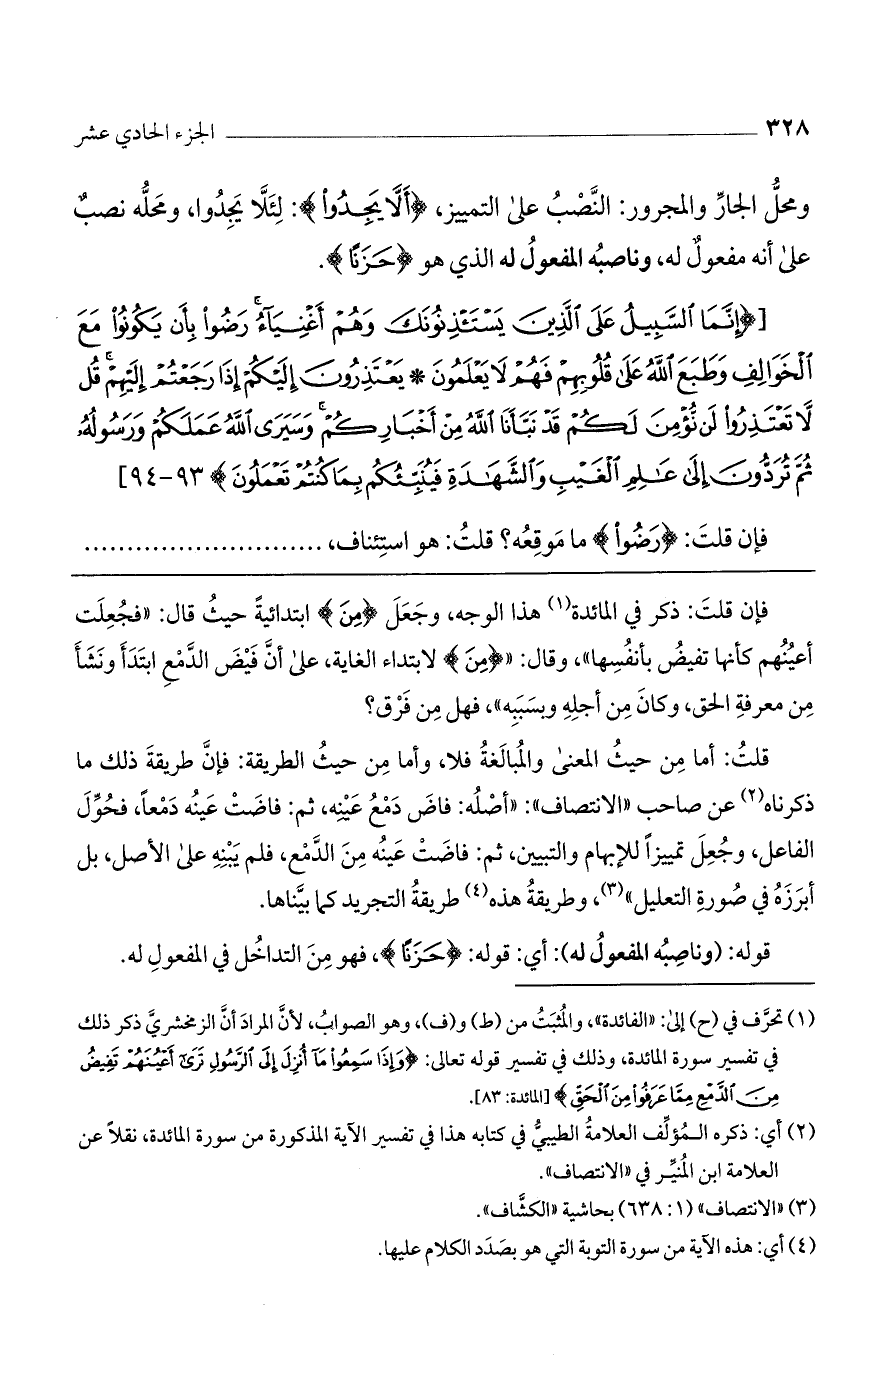 ٣٢٨ ــــــــــ الجزء الحادي عشر
ومحلُّ الجارِّ والمجرور: النَّصْبُ على التمييز، ﴿أَلَّا يَجِدُوا۟﴾: لِئَلَّا يَجِدُوا، ومَحَلُّه نصبٌ
علىٰ أنه مفعولٌ له، وناصبُه المفعولُ له الذي هو ﴿حَزَنًا﴾.
[﴿إِنَّمَا ٱلسَّبِيلُ عَلَى ٱلَّذِينَ يَسْتَـْٔذِنُونَكَ وَهُمْ أَغْنِيَآءُ ۚ رَضُوا۟ بِأَن يَكُونُوا۟ مَعَ
ٱلْخَوَالِفِ وَطَبَعَ ٱللَّهُ عَلَىٰ قُلُوبِهِمْ فَهُمْ لَا يَعْلَمُونَ * يَعْتَذِرُونَ إِلَيْكُمْ إِذَا رَجَعْتُمْ إِلَيْهِمْ ۚ قُل
لَّا تَعْتَذِرُوا۟ لَن نُّؤْمِنَ لَكُمْ قَدْ نَبَّأَنَا ٱللَّهُ مِنْ أَخْبَارِكُمْ ۚ وَسَيَرَى ٱللَّهُ عَمَلَكُمْ وَرَسُولُهُۥ
ثُمَّ تُرَدُّونَ إِلَىٰ عَـٰلِمِ ٱلْغَيْبِ وَٱلشَّهَـٰدَةِ فَيُنَبِّئُكُم بِمَا كُنتُمْ تَعْمَلُونَ﴾ ٩٣-٩٤]
فإن قلتَ: ﴿رَضُوا۟﴾ ما مَوقِعُه؟ قلتُ: هو استِئناف، ............................
فإن قلتَ: ذكر في المائدة(١) هذا الوجه، وجَعَلَ ﴿مِنَ﴾ ابتدائيةً حيثُ قال: «فجُعِلَت
أعيُنُهم كأنها تفيضُ بأنفُسِها»، وقال: «﴿مِنَ﴾ لابتداء الغاية، علىٰ أنَّ فَيْضَ الدَّمْعِ ابتَدَأَ ونَشَأَ
مِن معرفةِ الحق، وكانَ مِن أجلِهِ وبسَبَبِه»، فهل مِن فَرْق؟
قلتُ: أما مِن حيثُ المعنىٰ والمُبالَغةُ فلا، وأما مِن حيثُ الطريقة: فإنَّ طريقةَ ذلك ما
ذكرناه(٢) عن صاحب «الانتصاف»: «أصْلُه: فاضَ دَمْعُ عَيْنِه، ثم: فاضَتْ عَينُه دَمْعاً، فحُوِّلَ
الفاعل، وجُعِلَ تمييزاً للإبهام والتبيين، ثم: فاضَتْ عَينُه مِنَ الدَّمْع، فلم يَبْنِهِ علىٰ الأصل، بل
أبرَزَهُ في صُورةِ التعليل»(٣)، وطريقةُ هذه(٤) طريقةُ التجريد كما بيَّناها.
قوله: (وناصِبُه المفعولُ له): أي: قوله: ﴿حَزَنًا﴾، فهو مِنَ التداخُل في المفعولِ له.
(١) تحرَّف في (ح) إلىٰ: «الفائدة»، والمُثبَتُ من (ط) و(ف)، وهو الصوابُ، لأنَّ المرادَ أنَّ الزمخشريَّ ذكر ذلك
في تفسير سورة المائدة، وذلك في تفسير قوله تعالى: ﴿وَإِذَا سَمِعُوا۟ مَآ أُنزِلَ إِلَى ٱلرَّسُولِ تَرَىٰٓ أَعْيُنَهُمْ تَفِيضُ
مِنَ ٱلدَّمْعِ مِمَّا عَرَفُوا۟ مِنَ ٱلْحَقِّ﴾ [المائدة: ٨٣].
(٢) أي: ذكره المُؤلِّف العلامةُ الطيبيُّ في كتابه هذا في تفسير الآية المذكورة من سورة المائدة، نقلاً عن
العلامة ابن المُنيِّر في «الانتصاف».
(٣) «الانتصاف» (١: ٦٣٨) بحاشية «الكشَّاف».
(٤) أي: هذه الآية من سورة التوبة التي هو بصَدَد الكلام عليها.